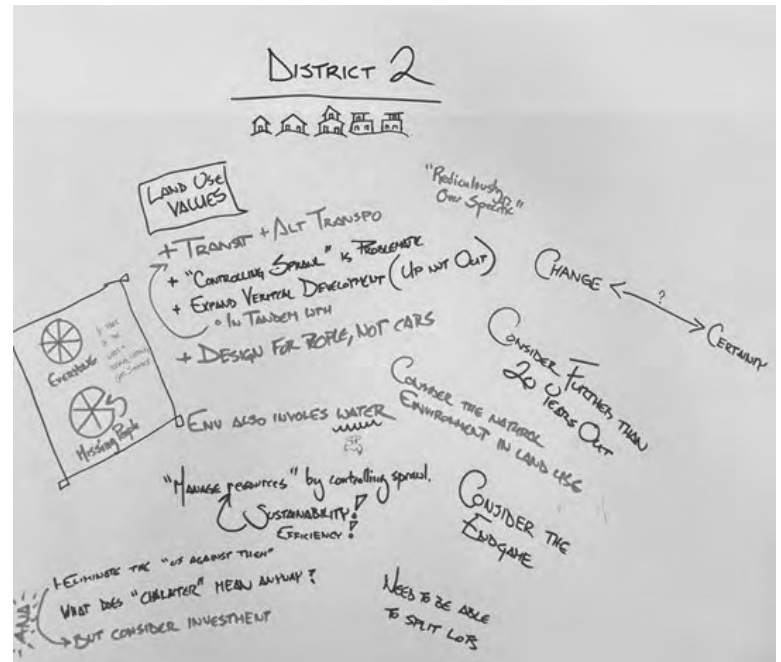 DISTRICT 2
LAND USE
VALUES
"Rediculously
Over Specific"
+ TRANSIT + ALT TRANSPO
+ "CONTROLLING SPRAWL" IS PROBLEMATIC
+ EXPAND VERITCAL DEVELOPMENT (UP NOT OUT)
IN TANDEM WITH
+ DESIGN FOR PEOPLE, NOT CARS
CHANGE
?
CERTAINTY
EVERYONE
Missing People
ENV ALSO INVOLES WATER
CONSIDER FURTHER THAN
20 YEARS OUT
CONSIDER THE NATURAL
ENVIRONMENT IN LAND USE
"MANAGE RESOURCES" by controlling sprawl.
SUSTAINABILITY!
EFFICIENCY!
CONSIDER THE
ENDGAME
+ ELIMINATE THE "US AGAINST THEM"
WHAT DOES "CHARACTER" MEAN ANYWAY?
BUT CONSIDER INVESTMENT
NEED TO BE ABLE
TO SPLIT LOTS